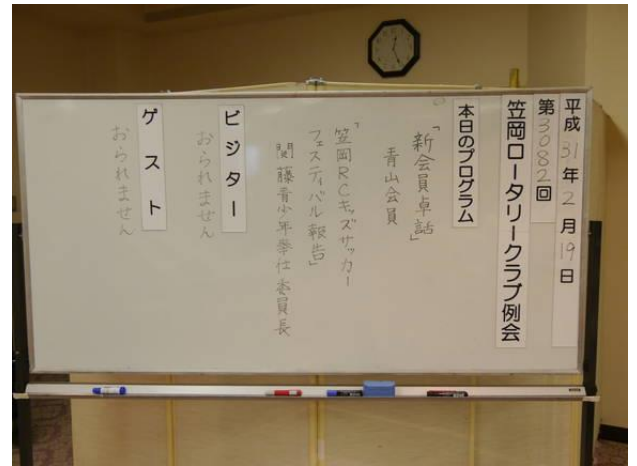 平成31年2月19日
第3082回
笠岡ロータリークラブ例会
本日のプログラム
「新会員卓話」
青山会員
「笠岡RCキッズサッカー
フェスティバル報告」
関藤青少年奉仕委員長
ビジター
おられません
ゲスト
おられません